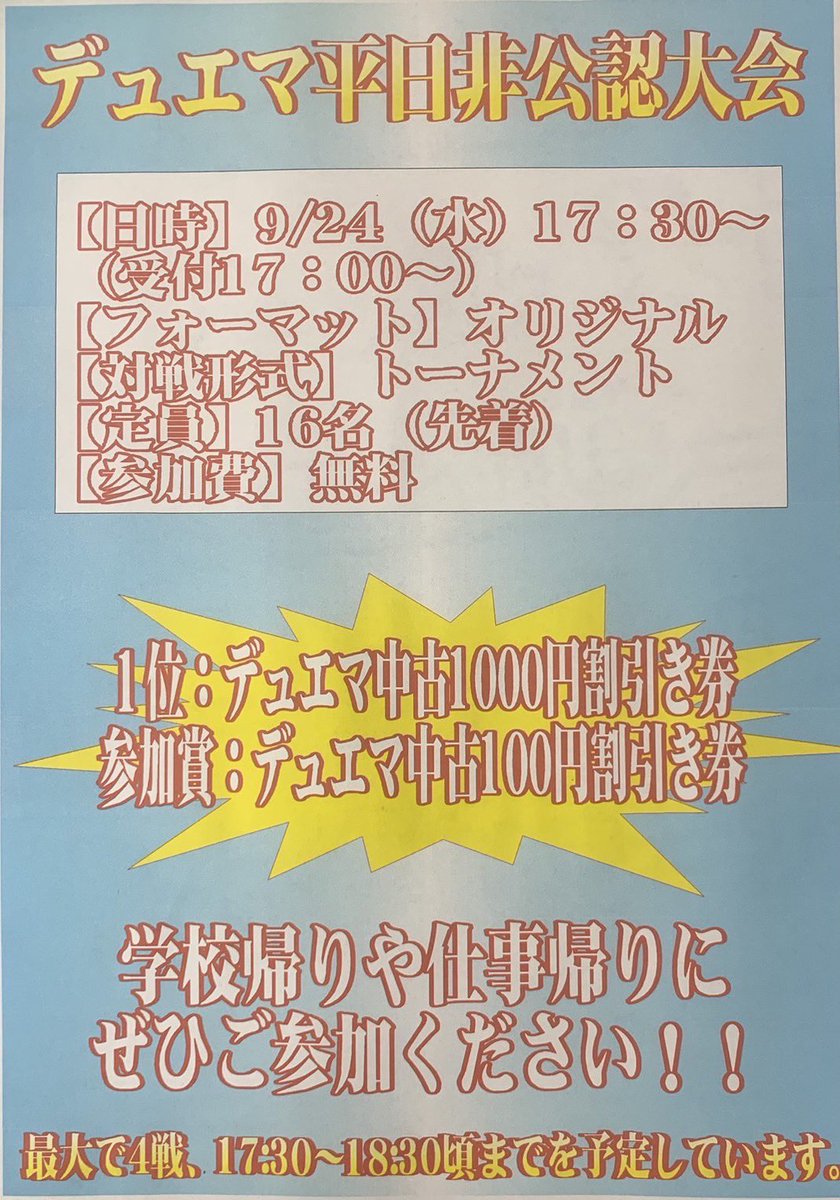 デュエマ平日非公認大会
【日時】9/24（水）17：30～
（受付17：00～）
【フォーマット】オリジナル
【対戦形式】トーナメント
【定員】16名（先着）
【参加費】無料
1位：デュエマ中古1000円割引き券
参加賞：デュエマ中古100円割引き券
学校帰りや仕事帰りに
ぜひご参加ください！！
最大で4戦、17:30～18:30頃までを予定しています。